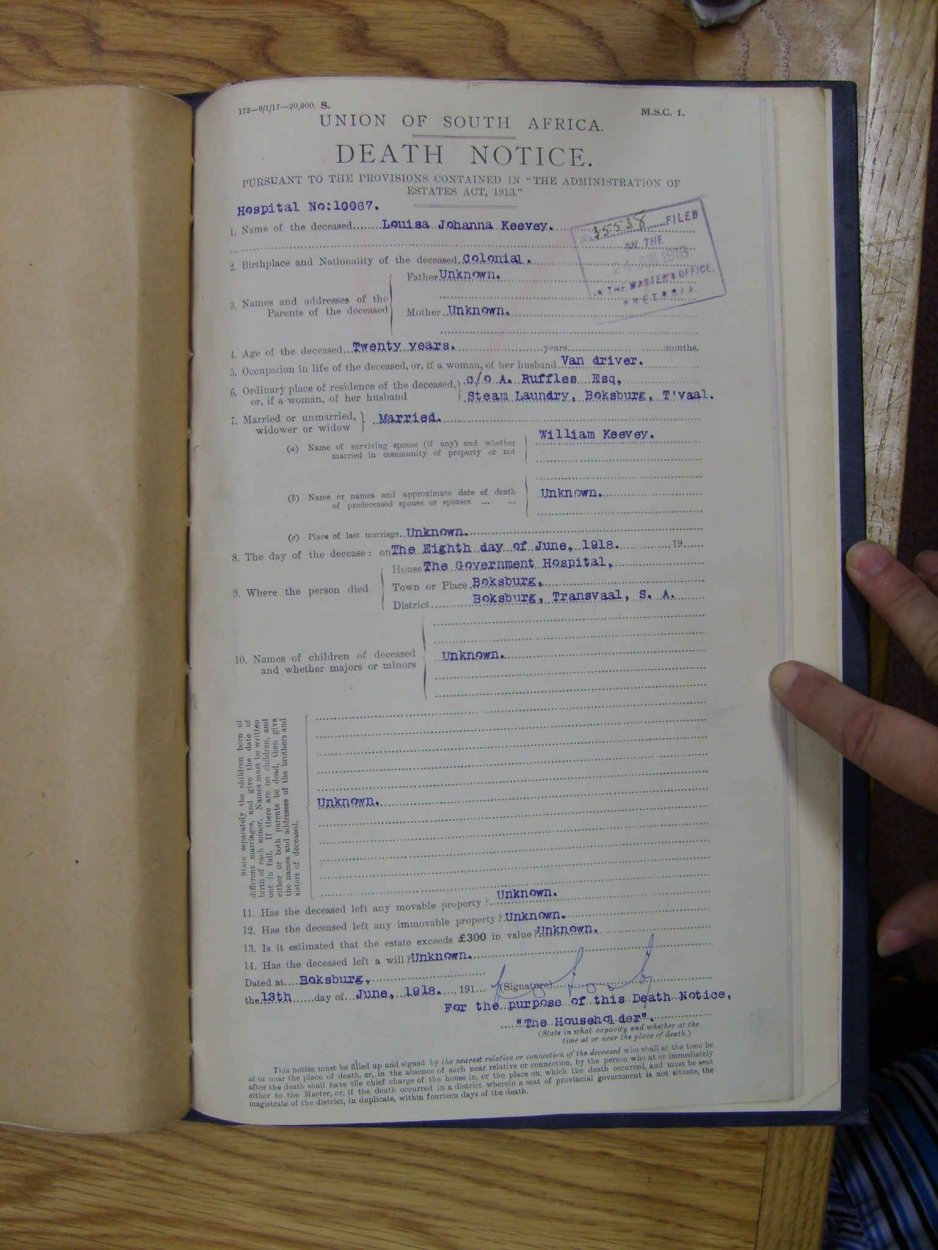 172—9/1/17—20,000. S.
M.S.C. 1.
UNION OF SOUTH AFRICA.
DEATH NOTICE.
PURSUANT TO THE PROVISIONS CONTAINED IN "THE ADMINISTRATION OF
ESTATES ACT, 1913."
Hospital No:10087.
35538 FILED
ON THE
THE MASTER'S OFFICE,
1. Name of the deceased Louisa Johanna Keevey.
2. Birthplace and Nationality of the deceased Colonial.
3. Names and addresses of the
Parents of the deceased
Father Unknown.
Mother Unknown.
4. Age of the deceased Twenty years. years months.
5. Occupation in life of the deceased, or, if a woman, of her husband Van driver.
6. Ordinary place of residence of the deceased,
or, if a woman, of her husband
c/o A. Ruffles Esq,
Steam Laundry, Boksburg, T'vaal.
7. Married or unmarried,
widower or widow
Married.
(a) Name of surviving spouse (if any) and whether
married in community of property or not
William Keevey.
(b) Name or names and approximate date of death
of predeceased spouse or spouses ... ...
Unknown.
(c) Place of last marriage Unknown.
8. The day of the decease: on The Eighth day of June, 1918. 19
9. Where the person died
House The Government Hospital,
Town or Place Boksburg,
District Boksburg, Transvaal, S. A.
10. Names of children of deceased
and whether majors or minors
Unknown.
State separately the children born of
different marriages, and give the date of
birth of each minor. Names must be written
out in full. If there are no children, and
either or both parents be dead, then give
the names and addresses of the brothers and
sisters of deceased.
Unknown.
11. Has the deceased left any movable property? Unknown.
12. Has the deceased left any immovable property? Unknown.
13. Is it estimated that the estate exceeds £300 in value? Unknown.
14. Has the deceased left a will? Unknown.
Dated at Boksburg,
the 13th day of June, 1918. 191
(Signature)
For the purpose of this Death Notice,
"The Householder".
(State in what capacity and whether at the
time at or near the place of death.)
This notice must be filled up and signed by the nearest relative or connection of the deceased who shall at the time be
at or near the place of death, or, in the absence of such near relative or connection, by the person who at or immediately
after the death shall have the chief charge of the house in, or the place on, which the death occurred, and must be sent
either to the Master, or, if the death occurred in a district wherein a seat of provincial government is not situate, the
magistrate of the district, in duplicate, within fourteen days of the death.